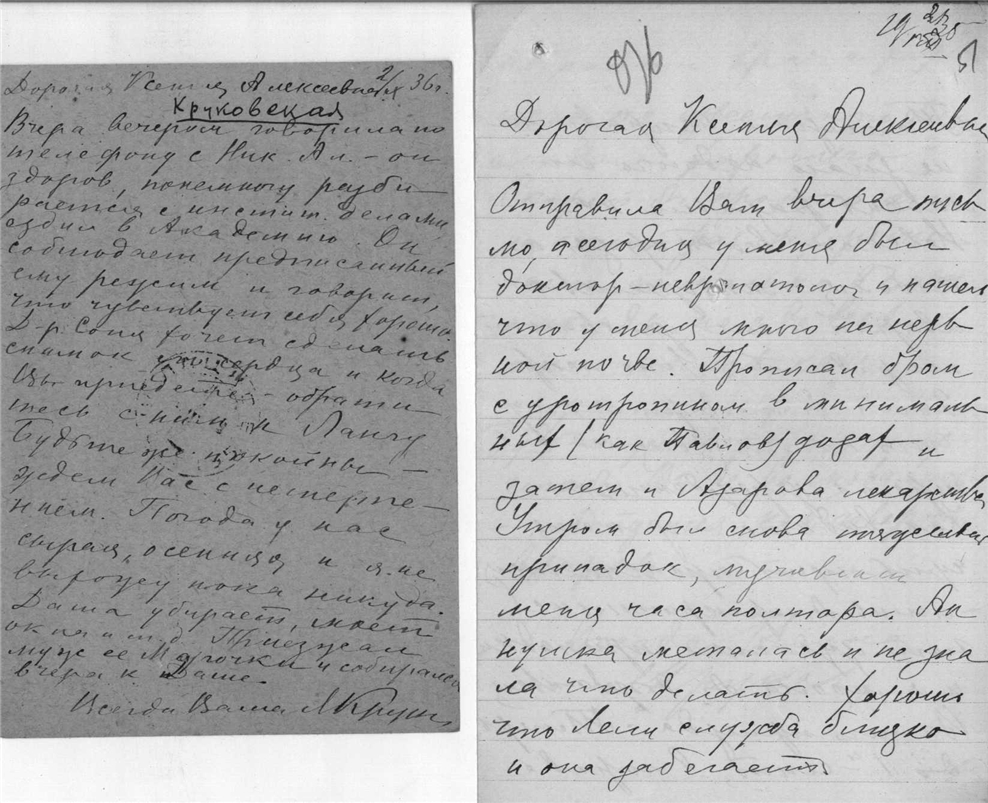 Дорогая Ксения Алексеевна 2/X 36 г.
Круковская
Вчера вечером говорила по
телефону с Ник. Ал. – он
здоров, понемногу разби
рается с инстит. делами
ездил в Академию. Он
соблюдает предписанный
ему режим и говорит,
что чувствует себя хорошо.
Д-р Соня хочет сделать
снимок сердца и когда
Вы приедете – обрати
тесь с ним к Лангу
Будьте же покойны –
ждем Вас с нетерпе-
нием. Погода у нас
сырая, осенняя и я не
выхожу пока никуда.
Даша убирает, моет
окна и т.д. Приезжал
муж ее Марочки и собирался
вчера к Даше.
Всегда Ваша Л Круки
876
19/ 25
51
Дорогая Ксения Алексеевна
Отправила Вам вчера пись
мо, а сегодня у меня был
доктор-невропатолог и нашел
что у меня много на нерв
ной почве. Прописал бром
с уротропином в минималь
ных (как Павлов) дозах и
затем и Азарова лекарства
Утром был снова
припадок, мучивший
меня часа полтора. Ан
нушка металась и не зна
ла что делать. Хорошо
что Лели служба близко
и она забегает.